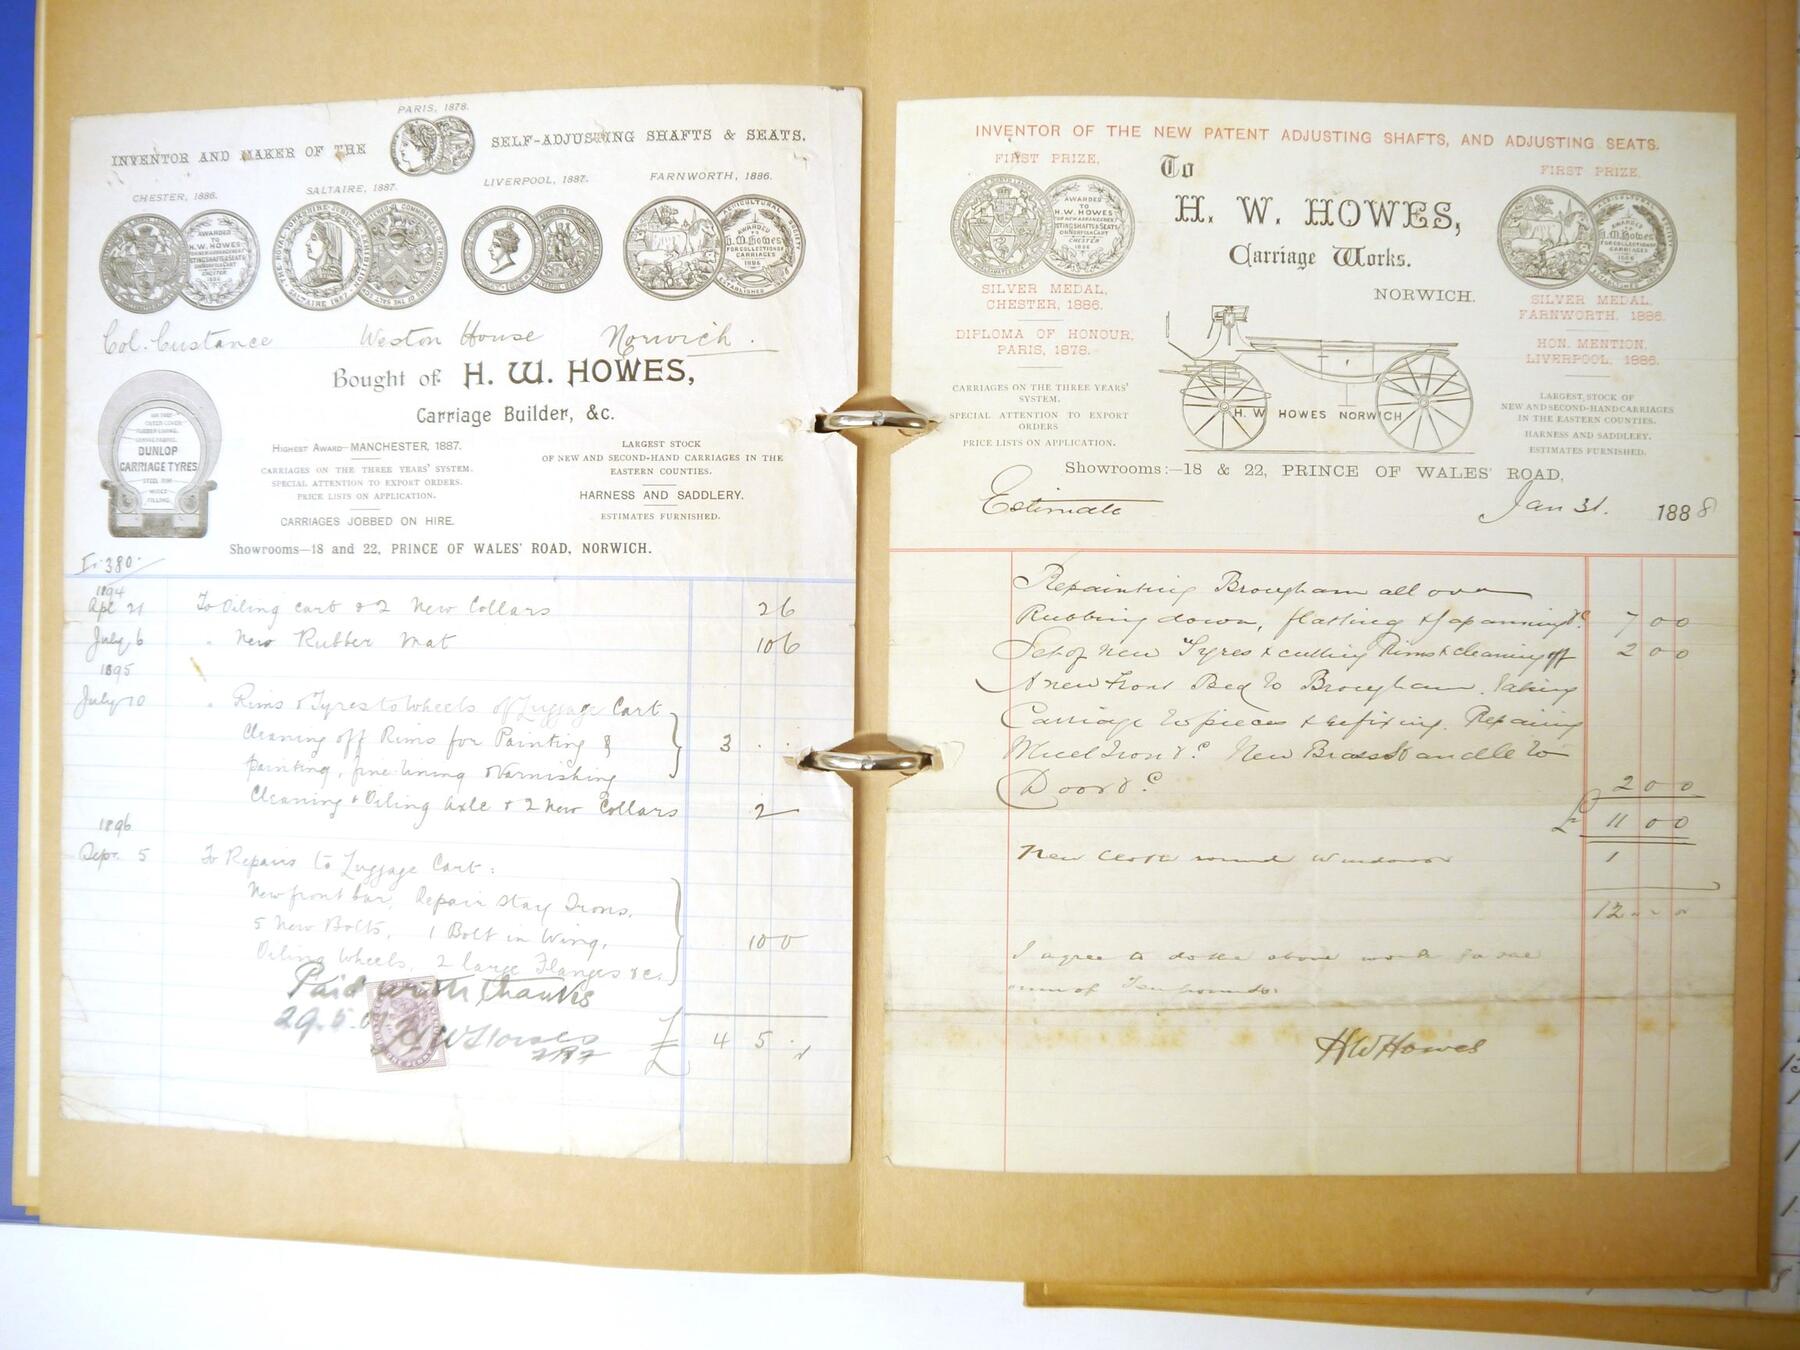 PARIS, 1878.
INVENTOR AND MAKER OF THE
SELF-ADJUSTING SHAFTS & SEATS.
CHESTER, 1886.
SALTAIRE, 1887.
LIVERPOOL, 1887.
FARNWORTH, 1886.
AWARDED
TO
H.W. HOWES
CHESTER
1886
AGRICULTURAL
AWARDED
TO
H.W. Howes
FOR COLLECTION OF
CARRIAGES
1886
Col. Custance Weston House Norwich.
Bought of H. W. HOWES,
Carriage Builder, &c.
DUNLOP
CARRIAGE TYRES
STEEL RIM
HIGHEST AWARD—MANCHESTER, 1887.
CARRIAGES ON THE THREE YEARS' SYSTEM.
SPECIAL ATTENTION TO EXPORT ORDERS.
PRICE LISTS ON APPLICATION.
CARRIAGES JOBBED ON HIRE.
LARGEST STOCK
OF NEW AND SECOND-HAND CARRIAGES IN THE
EASTERN COUNTIES.
HARNESS AND SADDLERY.
ESTIMATES FURNISHED.
Showrooms—18 and 22, PRINCE OF WALES' ROAD, NORWICH.
380
1894
Apl 21 To Oiling cart & 2 New Collars 2 6
July 6 " New Rubber Mat 10 6
1895
July 10 " Rims & Tyres to Wheels of Luggage Cart
Cleaning off Rims for Painting & 3 . .
painting, fine lining & Varnishing
Cleaning & Oiling Axle & 2 New Collars 2 –
1896
Sepr. 5 To Repairs to Luggage Cart:
New front bar, Repair Stay Irons,
5 New Bolts, 1 Bolt in Wing, 10 0
Oiling Wheels, 2 large Flanges &c.
Paid with thanks
29.5.
HW Howes
£ 4 5 .
INVENTOR OF THE NEW PATENT ADJUSTING SHAFTS, AND ADJUSTING SEATS.
FIRST PRIZE,
To
FIRST PRIZE,
AWARDED
TO
H.W. HOWES
CHESTER
1886
H. W. HOWES,
Carriage Works.
NORWICH.
AWARDED
TO
H.W. Howes
FOR COLLECTION OF
CARRIAGES
1886
SILVER MEDAL,
CHESTER, 1886.
DIPLOMA OF HONOUR,
PARIS, 1878.
SILVER MEDAL,
FARNWORTH, 1886.
HON. MENTION,
LIVERPOOL, 1886.
CARRIAGES ON THE THREE YEARS'
SYSTEM.
SPECIAL ATTENTION TO EXPORT
ORDERS
PRICE LISTS ON APPLICATION.
H. W HOWES NORWICH
LARGEST STOCK OF
NEW AND SECOND-HAND CARRIAGES
IN THE EASTERN COUNTIES.
HARNESS AND SADDLERY.
ESTIMATES FURNISHED.
Showrooms:—18 & 22, PRINCE OF WALES' ROAD,
Estimate Jan 31. 1888
Repainting Brougham all over
Rubbing down, flatting & Japanning &c. 7 0 0
Set of New Tyres & cutting Rims & cleaning off 2 0 0
A new Front Bed to Brougham. Taking
Carriage to pieces & refixing. Repairing
Iron &c. New Brass Handle to
Door &c. 2 0 0
£ 11 0 0
New Cloth round Windows 1
12
I agree to do the above work for the
sum of Ten pounds.
HW Howes